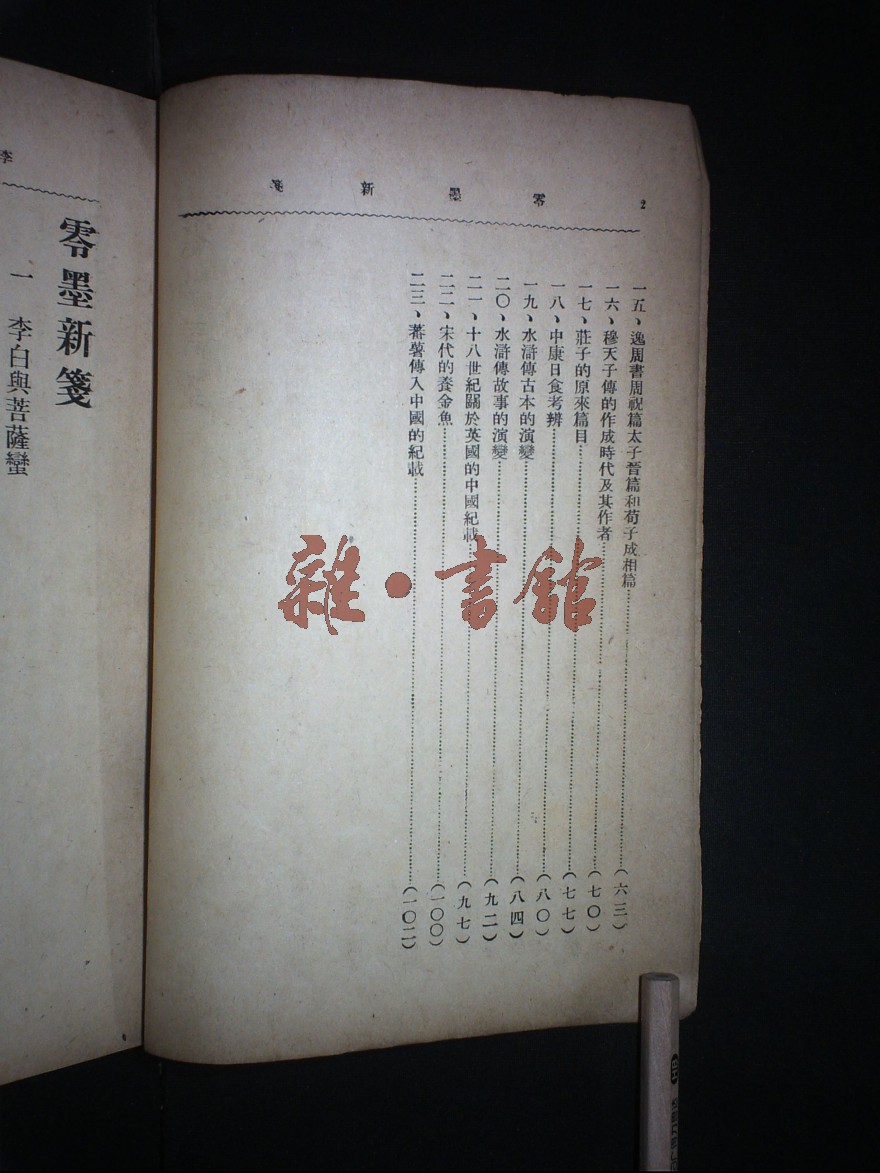 2 零墨新箋
一五、逸周書周祝篇太子晉篇和荀子成相篇(六三)
一六、穆天子傳的作成時代及其作者(七〇)
一七、莊子的原來篇目(七七)
一八、中康日食考辨(八〇)
一九、水滸傳古本的演變(八四)
二〇、水滸傳故事的演變(九二)
二一、十八世紀關於英國的中國紀載(九七)
二二、宋代的養金魚(一〇〇)
二三、蕃薯傳入中國的紀載(一〇二)
李
零墨新箋
一 李白與菩薩蠻
雜·書館